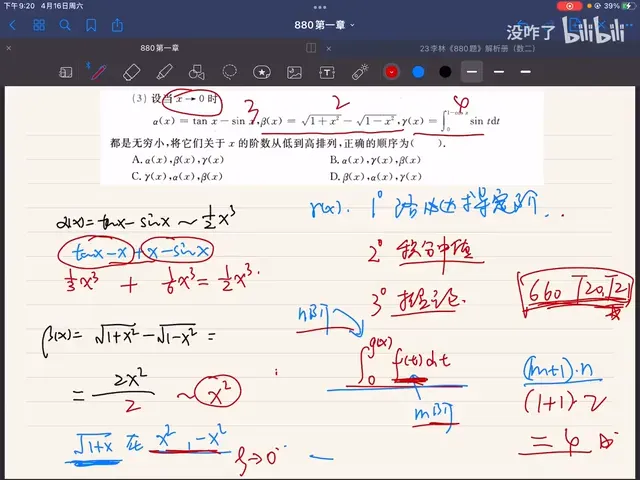 下午9:20 4月16日周六
39%
880 第一章
没咋了 bilibili
880 第一章
23李林《880题》解析册（数二）
(3) 设当 x→0 时
3 2 4
α(x) = tan x − sin x, β(x) = √(1+x²) − √(1−x²), γ(x) = ∫₀^(1−cos x) sin t dt
都是无穷小，将它们关于 x 的阶数从低到高排列，正确的顺序为( ).
A. α(x), β(x), γ(x) B. β(x), α(x), γ(x)
C. γ(x), α(x), β(x) D. β(x), γ(x), α(x)
α(x) = tanx − sinx ~ ½x³
tanx − x + x − sinx
⅓x³ + ⅙x³ = ½x³.
β(x) = √(1+x²) − √(1−x²) =
= 2x²/2 ~ x²
√(1+x) 在 x², −x²
ξ→0
r(x). 1°
求导定阶
2° 积分中值
3°
n阶
∫₀^g(x) f(t) dt
m阶
660
(m+1)·n
(1+1)·2
= 4